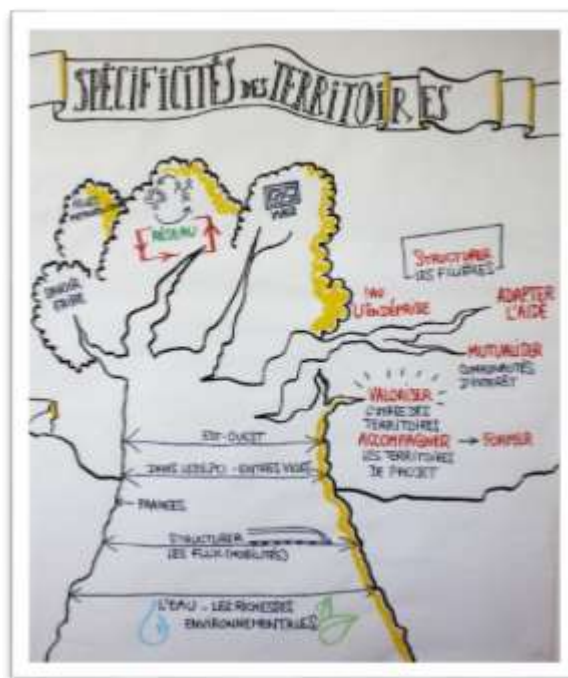 SPÉCIFICITÉS DES TERRITOIRES
RÉSEAU
SAVOIR
FAIRE
STRUCTURER
LES FILIÈRES
ADAPTER
L'AIDE
MUTUALISER
COMMUNAUTÉS
D'INTÉRÊT
VALORISER
L'IMAGE DES
TERRITOIRES
ACCOMPAGNER → FORMER
LES TERRITOIRES
DE PROJET
EST-OUEST
FRANGES
STRUCTURER
LES FLUX (MOBILITÉS)
L'EAU - LES RICHESSES
ENVIRONNEMENTALES